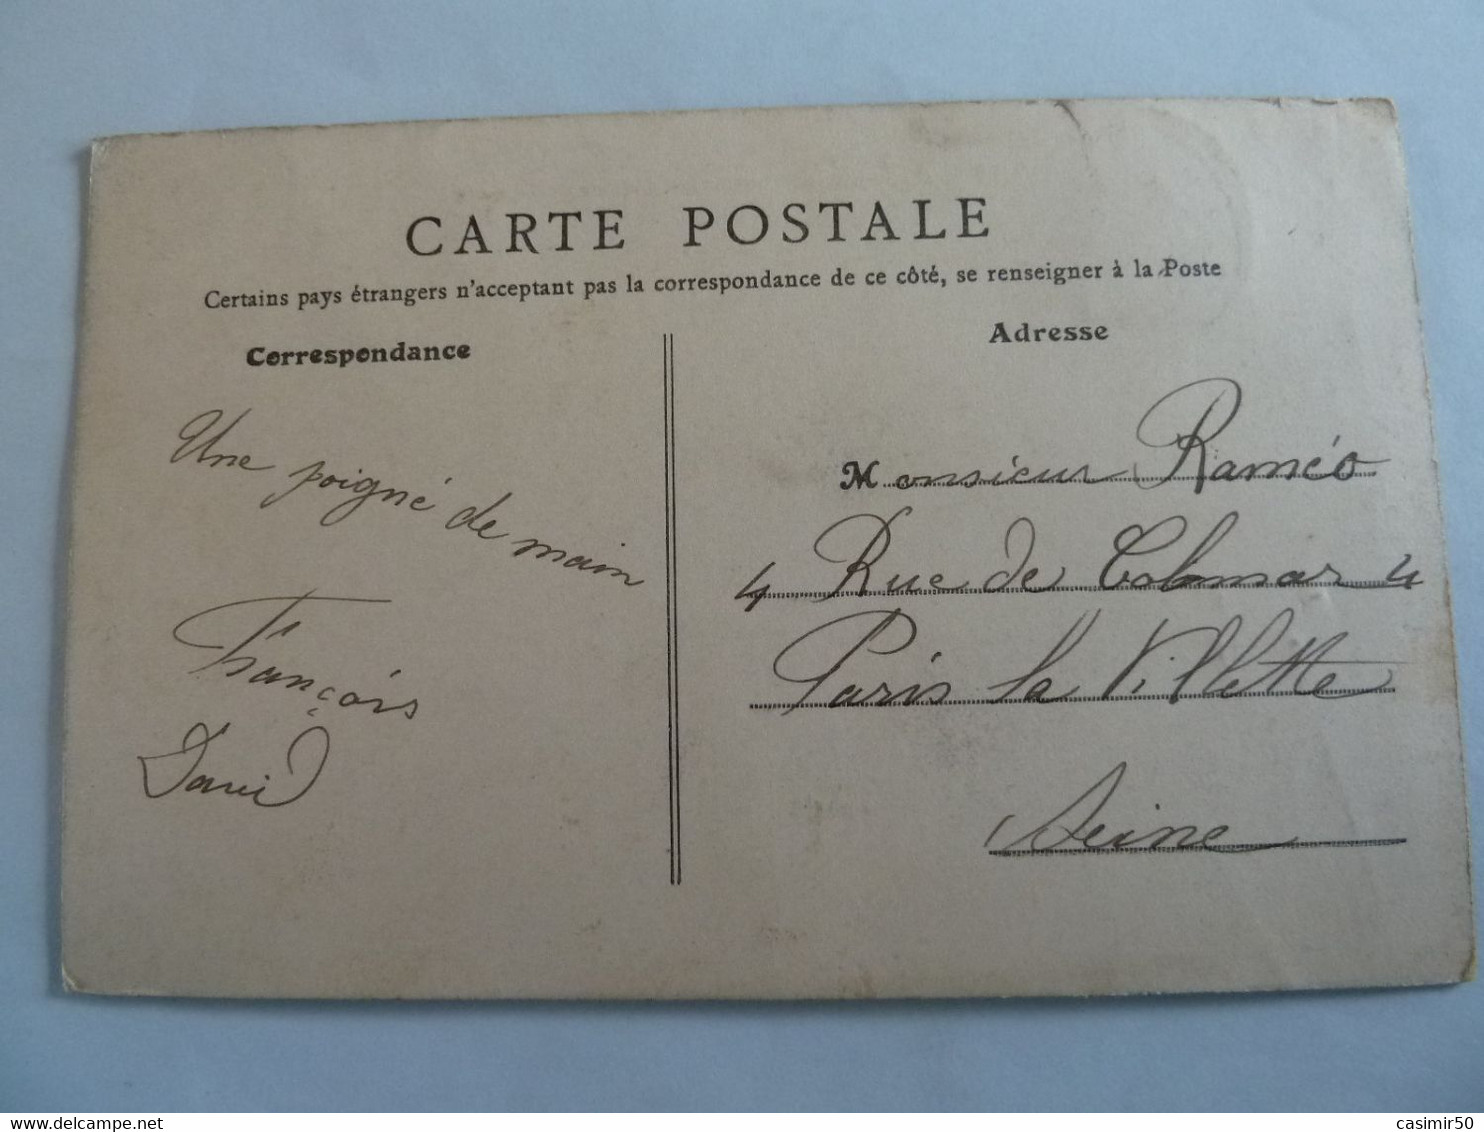 CARTE POSTALE
Certains pays étrangers n'acceptant pas la correspondance de ce côté, se renseigner à la Poste
Correspondance
Une poigné de main
François
David
Adresse
Monsieur Raméo
4 Rue de Colmar 4
Paris la Villette
Seine
www.delcampe.net
casimir50